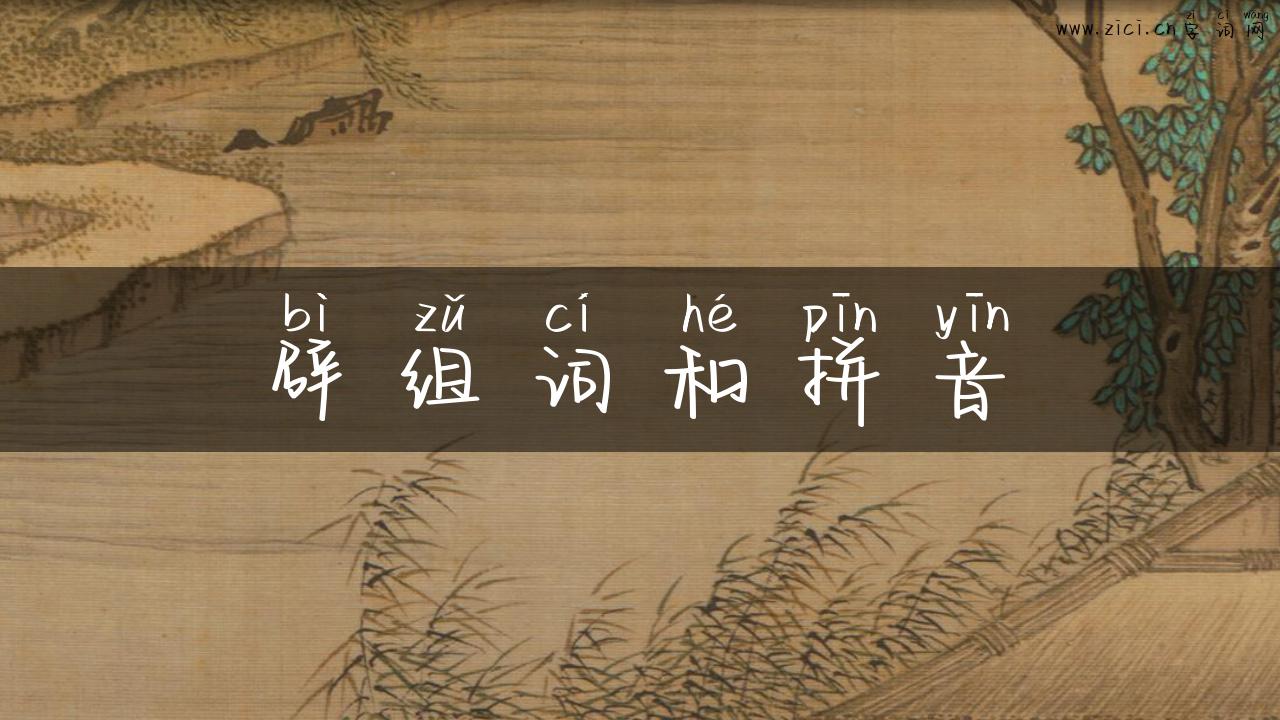 zì cí wǎng
www.zici.cn字词网
bì zǔ cí hé pīn yīn
辟组词和拼音